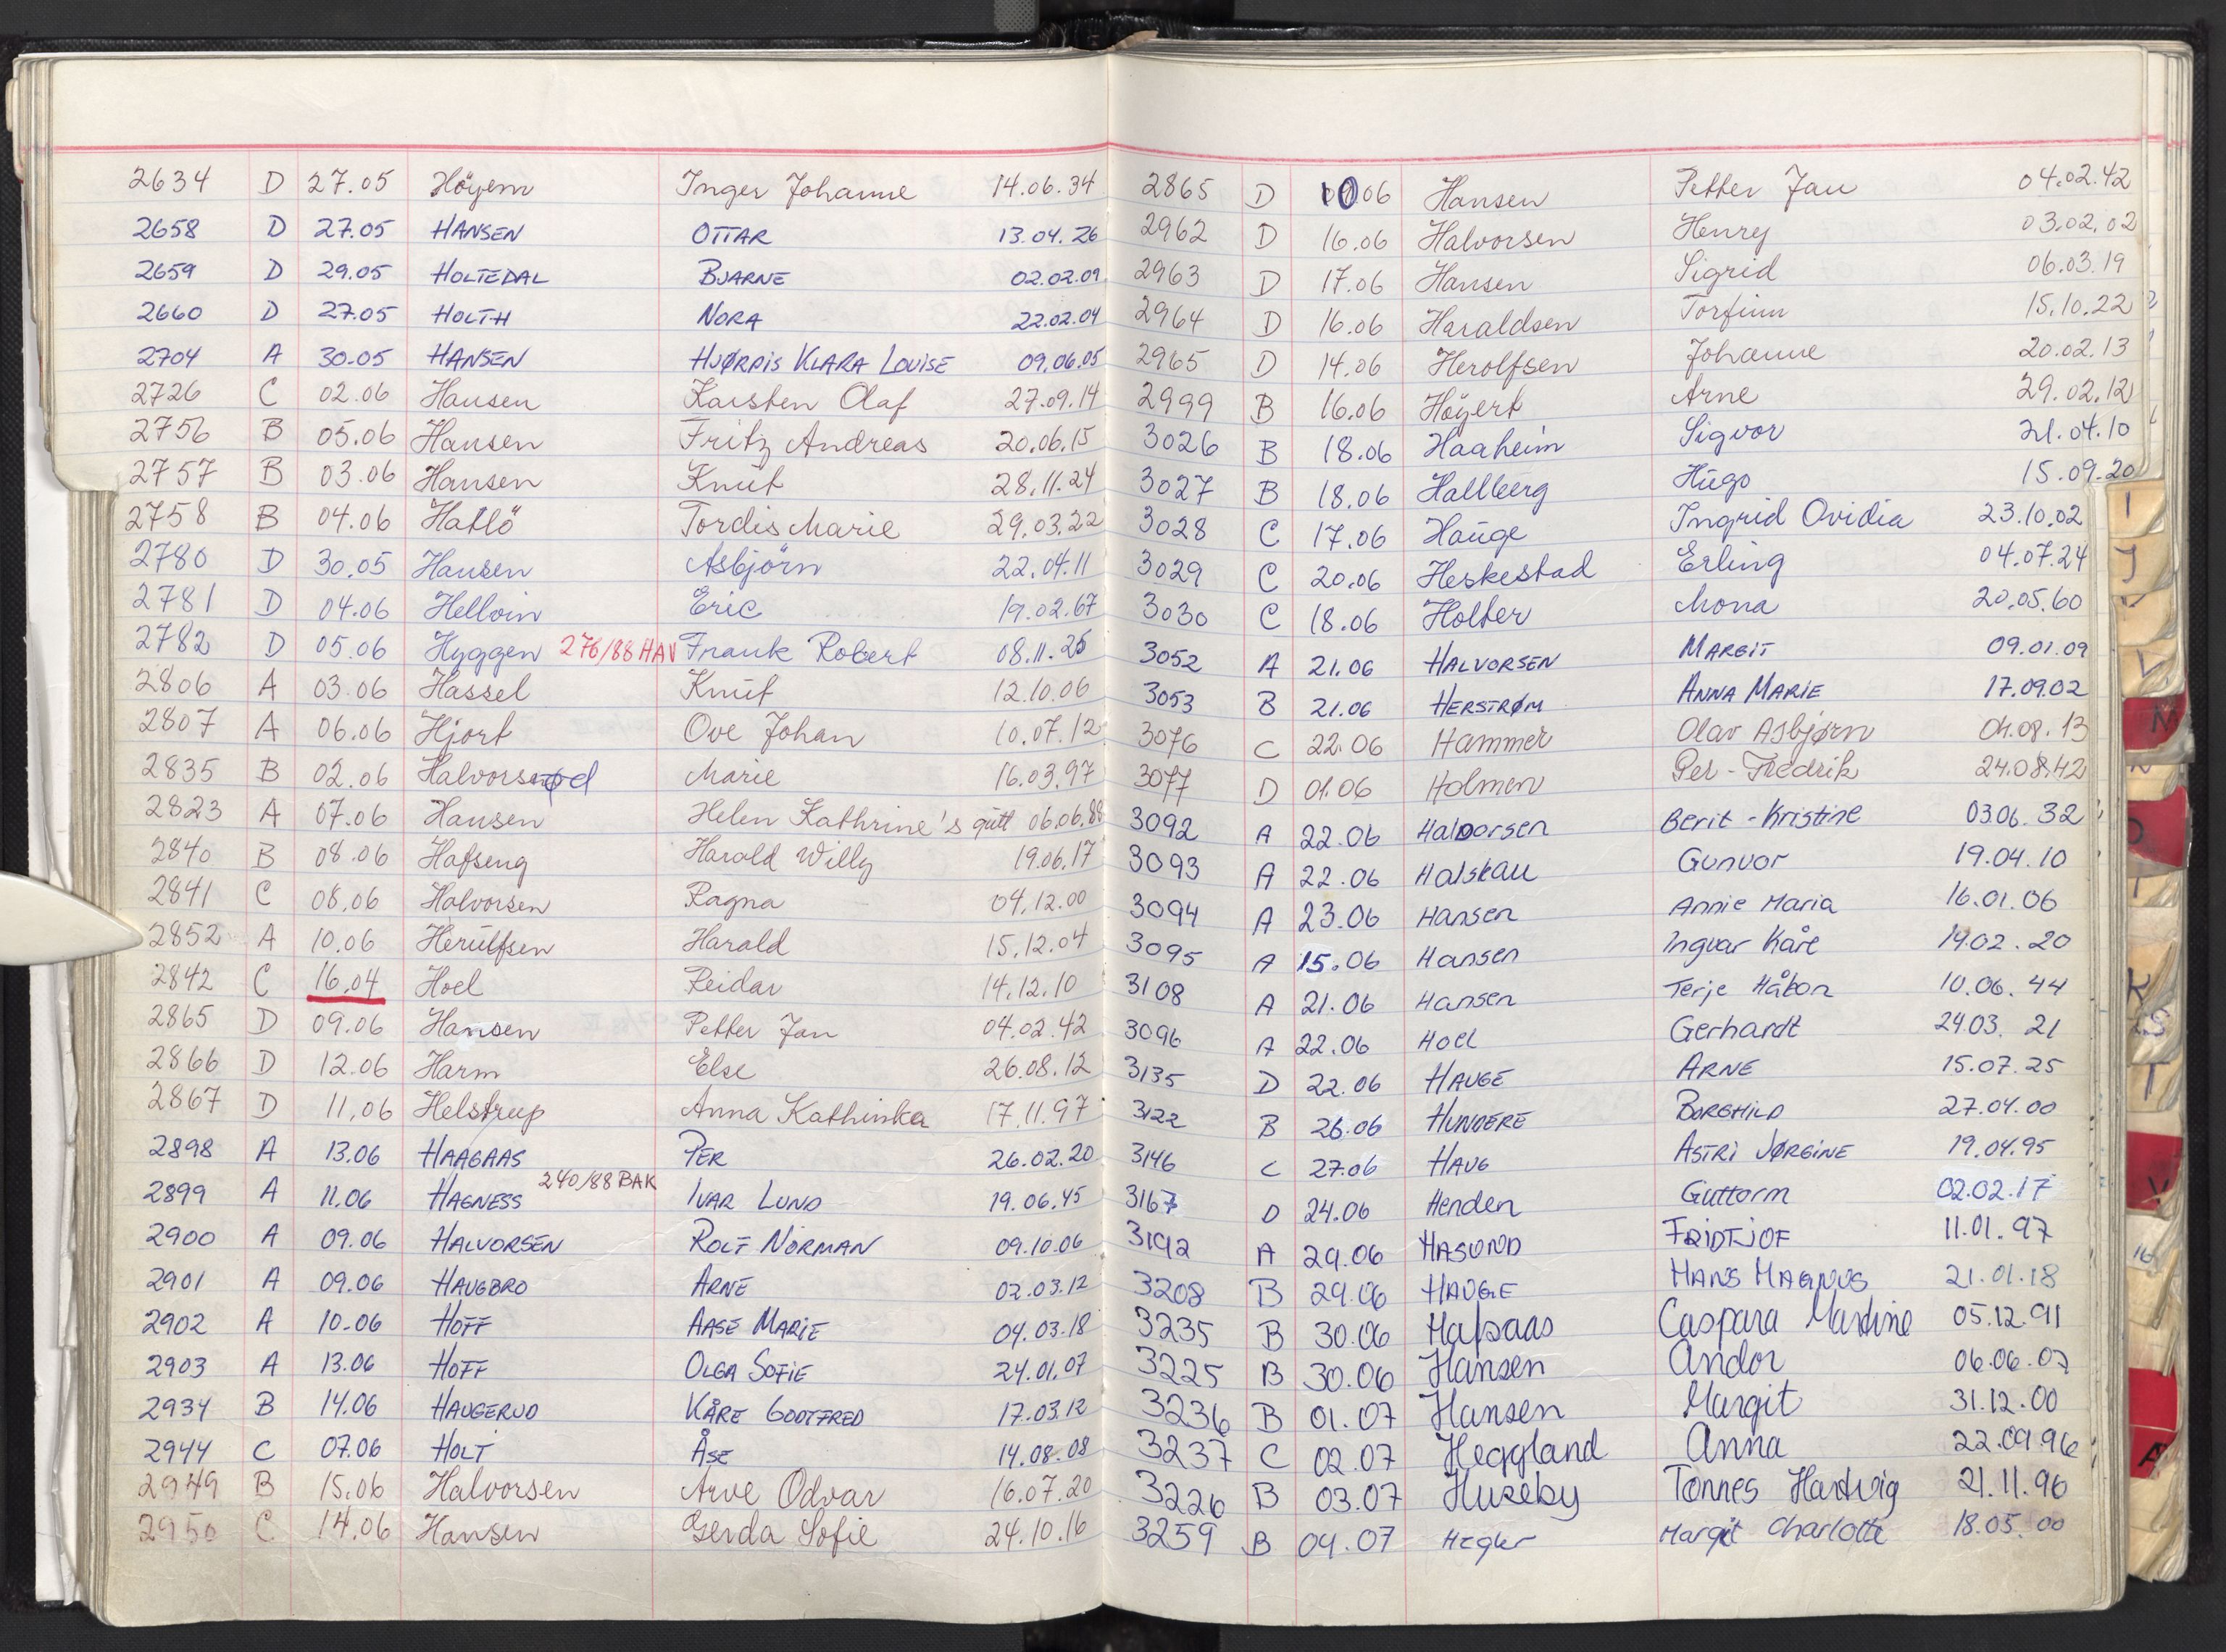 2634 D 27.05 Höyem Inger Johanne 14.06.34
2658 D 27.05 HANSEN OTTAR 13.04.26
2659 D 29.05 HOLTEDAL BJARNE 02.02.09
2660 D 27.05 HOLTH NORA 22.02.04
2704 A 30.05 HANSEN HJØRDIS KLARA LOUISE 09.06.05
2726 C 02.06 Hansen Karsten Olaf 27.09.14
2756 B 05.06 Hansen Fritz Andreas 20.06.15
2757 B 03.06 Hansen Knut 28.11.24
2758 B 04.06 Hatlö Tordis Marie 29.03.22
2780 D 30.05 Hansen Asbjörn 22.04.11
2781 D 04.06 Hellvin Eric 19.02.67
2782 D 05.06 Hyggen 276/88 HAV Frank Robert 08.11.25
2806 A 03.06 Hassel Knut 12.10.06
2807 A 06.06 Hjort Ove Johan 10.07.12
2835 B 02.06 Marie 16.03.97
2823 A 07.06 Hansen Helen Kathrine's gutt 06.06.88
2840 B 08.06 Hafseng Harald Willy 19.06.17
2841 C 08.06 Halvorsen Ragna 04.12.00
2852 A 10.06 Herulfsen Harald 15.12.04
2842 C 16.04 Hoel Reidar 14.12.10
2865 D 09.06 Hansen Petter Jan 04.02.42
2866 D 12.06 Harm Else 26.08.12
2867 D 11.06 Helstrup Anna Kathinka 17.11.97
2898 A 13.06 HAAGAAS PER 26.02.20
2899 A 11.06 HAGNESS 240/88 BAK IVAR LUND 19.06.45
2900 A 09.06 HALVORSEN ROLF NORMAN 09.10.06
2901 A 09.06 HAUGBRO ARNE 02.03.12
2902 A 10.06 HOFF AASE MARIE 04.03.18
2903 A 13.06 HOFF OLGA SOFIE 24.01.07
2934 B 14.06 HAUGERUD KÅRE GODTFRED 17.03.12
2944 C 07.06 HOLT ÅSE 14.08.08
2949 B 15.06 Halvorsen Arve Odvar 16.07.20
2950 C 14.06 Hansen Gerda Sofie 24.10.16
2865 D 10.06 Hansen Petter Jan 04.02.42
2962 D 16.06 Halvorsen Henry 03.02.02
2963 D 17.06 Hansen Sigrid 06.03.19
2964 D 16.06 Haraldsen Torfinn 15.10.22
2965 D 14.06 Herolfsen Johanne 20.02.13
2999 B 16.06 Höyert Arne 29.02.12
3026 B 18.06 Haaheim Sigvor 21.04.10
3027 B 18.06 Hallberg Hugo 15.09.20
3028 C 17.06 Hauge Ingrid Ovidia 23.10.02
3029 C 20.06 Heskestad Erling 04.07.24
3030 C 18.06 Holter Mona 20.05.60
3052 A 21.06 HALVORSEN MARGIT 09.01.09
3053 B 21.06 HERSTRØM ANNA MARIE 17.09.02
3076 C 22.06 Hammer Olav Asbjørn 04.08.13
3077 D 01.06 Holmen Per-Fredrik 24.08.42
3092 A 22.06 Halvorsen Berit-Kristine 03.06.32
3093 A 22.06 Halskau Gunvor 19.04.10
3094 A 23.06 Hansen Annie Maria 16.01.06
3095 A 15.06 Hansen Ingvar Kåre 14.02.20
3108 A 21.06 Hansen Terje Håkon 10.06.44
3096 A 22.06 Hoel Gerhardt 24.03.21
3135 D 22.06 HAUGE ARNE 15.07.25
3122 B 26.06 HUNDERE BORGHILD 27.04.00
3146 C 27.06 HAUG ASTRI JØRGINE 19.04.95
3167 D 24.06 Henden Guttorm 02.02.17
3192 A 29.06 HASUND FRIDTJOF 11.01.97
3208 B 29.06 HAUGE HANS MAGNUS 21.01.18
3235 B 30.06 Hafsaas Caspara Martine 05.12.91
3225 B 30.06 Hansen Andor 06.06.07
3236 B 01.07 Hansen Margit 31.12.00
3237 C 02.07 Heggland Anna 22.09.96
3226 B 03.07 Huseby Tønnes Hartvig 21.11.96
3259 B 04.07 Hegler Margit Charlotte 18.05.00
I
J
M
K
S
T
A